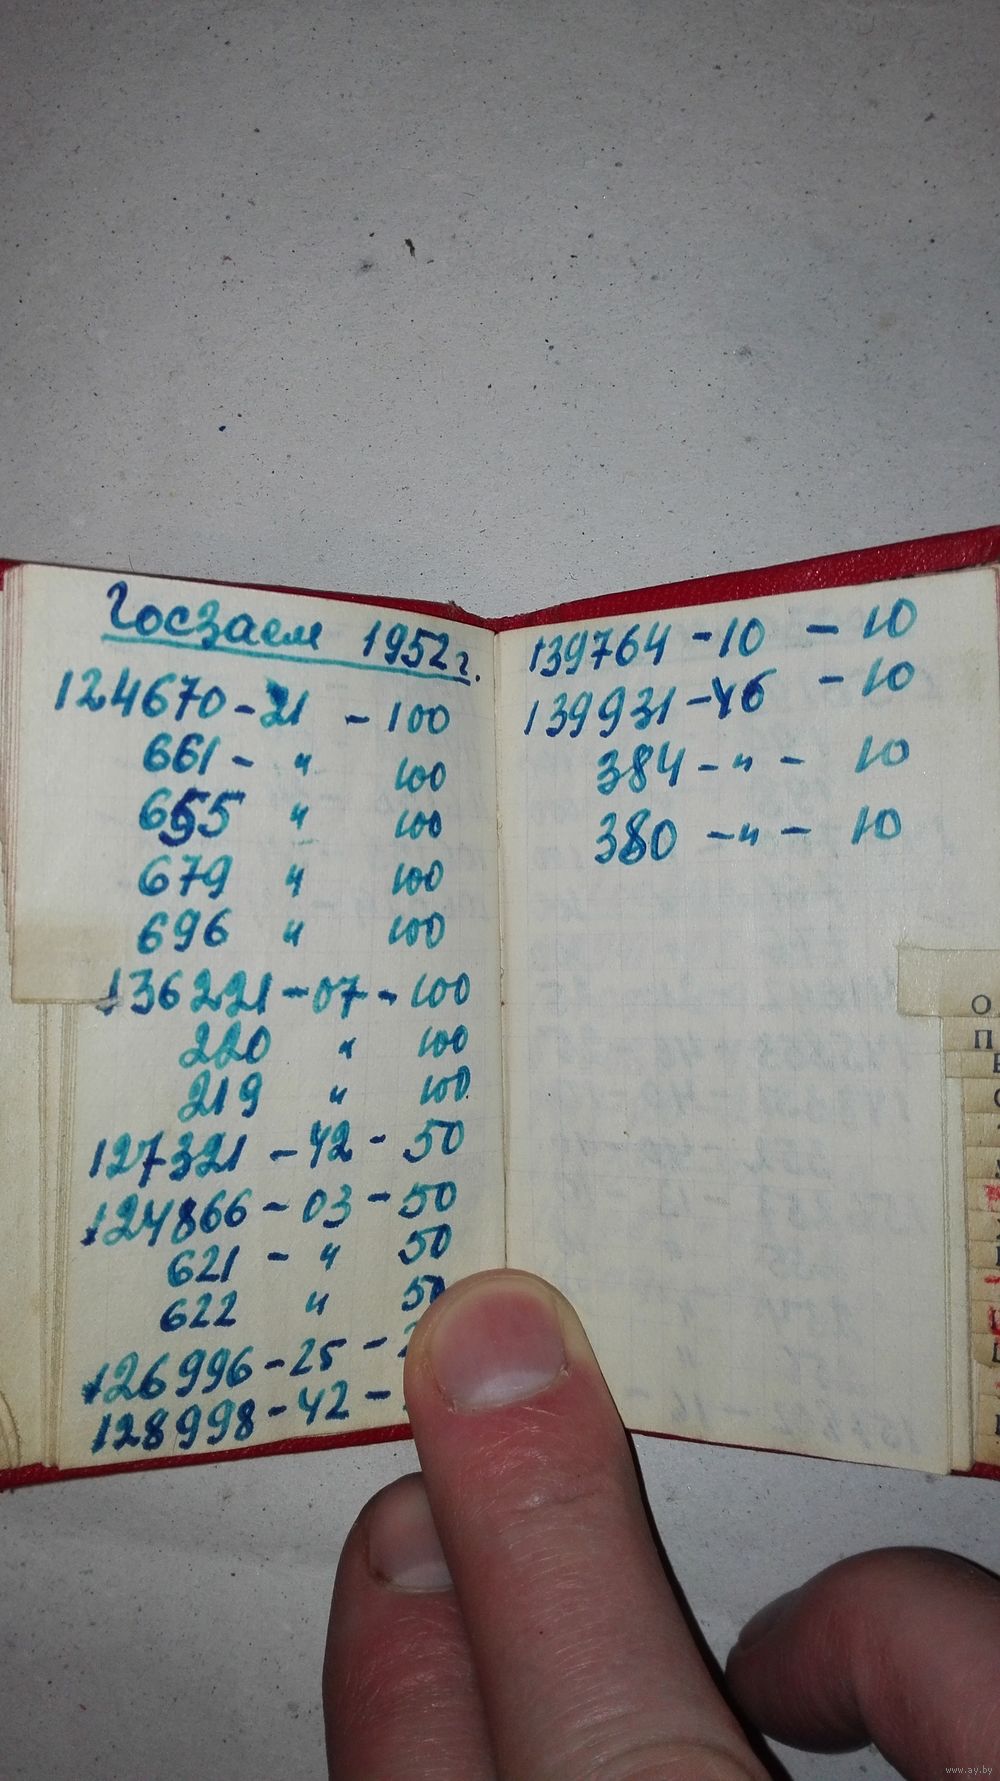 Госзаем 1952 г.
124670 - 21 - 100
661 - " 100
655 " 100
679 " 100
696 " 100
136221 - 07 - 100
220 " 100
219 " 100
127321 - 42 - 50
124866 - 03 - 50
621 - " 50
622 " 50
126996 - 25 -
128998 - 42 -
139764 - 10 - 10
139931 - 46 - 10
384 - " - 10
380 - " - 10
www.ay.by